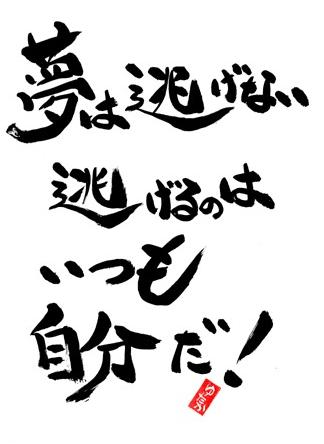 夢は逃げない
逃げるのは
いつも
自分だ！